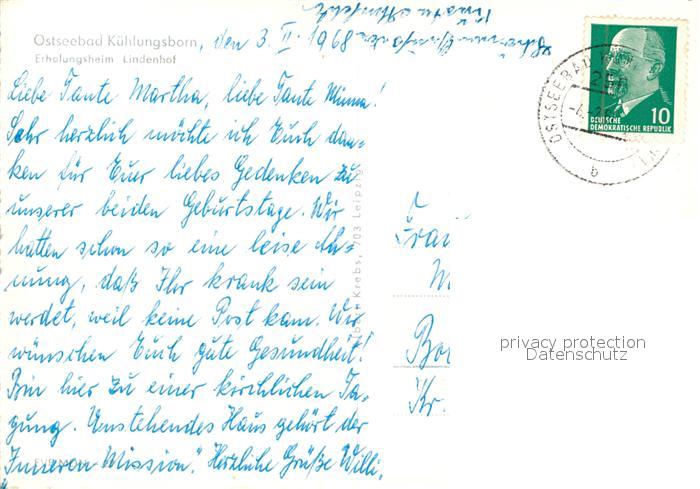 Ostseebad Kühlungsborn, den 3. II. 1968
Erholungsheim Lindenhof
Liebe Tante Martha, liebe Tante Minna!
Sehr herzlich möchte ich Euch dan-
ken für Euer liebes Gedenken zu
unserer beiden Geburtstage. Wir
hatten schon so eine leise Ah-
nung, daß Ihr krank sein
werdet, weil keine Post kam. Wir
wünschen Euch gute Gesundheit!
Bin hier zu einer kirchlichen Ta-
gung. Umstehendes Haus gehört der
"Inneren Mission". Herzliche Grüße Willi.
Krebs, 703 Leipzig
OSTSEEBAD
25
b
10
DEUTSCHE
DEMOKRATISCHE REPUBLIK
Frau
Kr.
privacy protection
Datenschutz